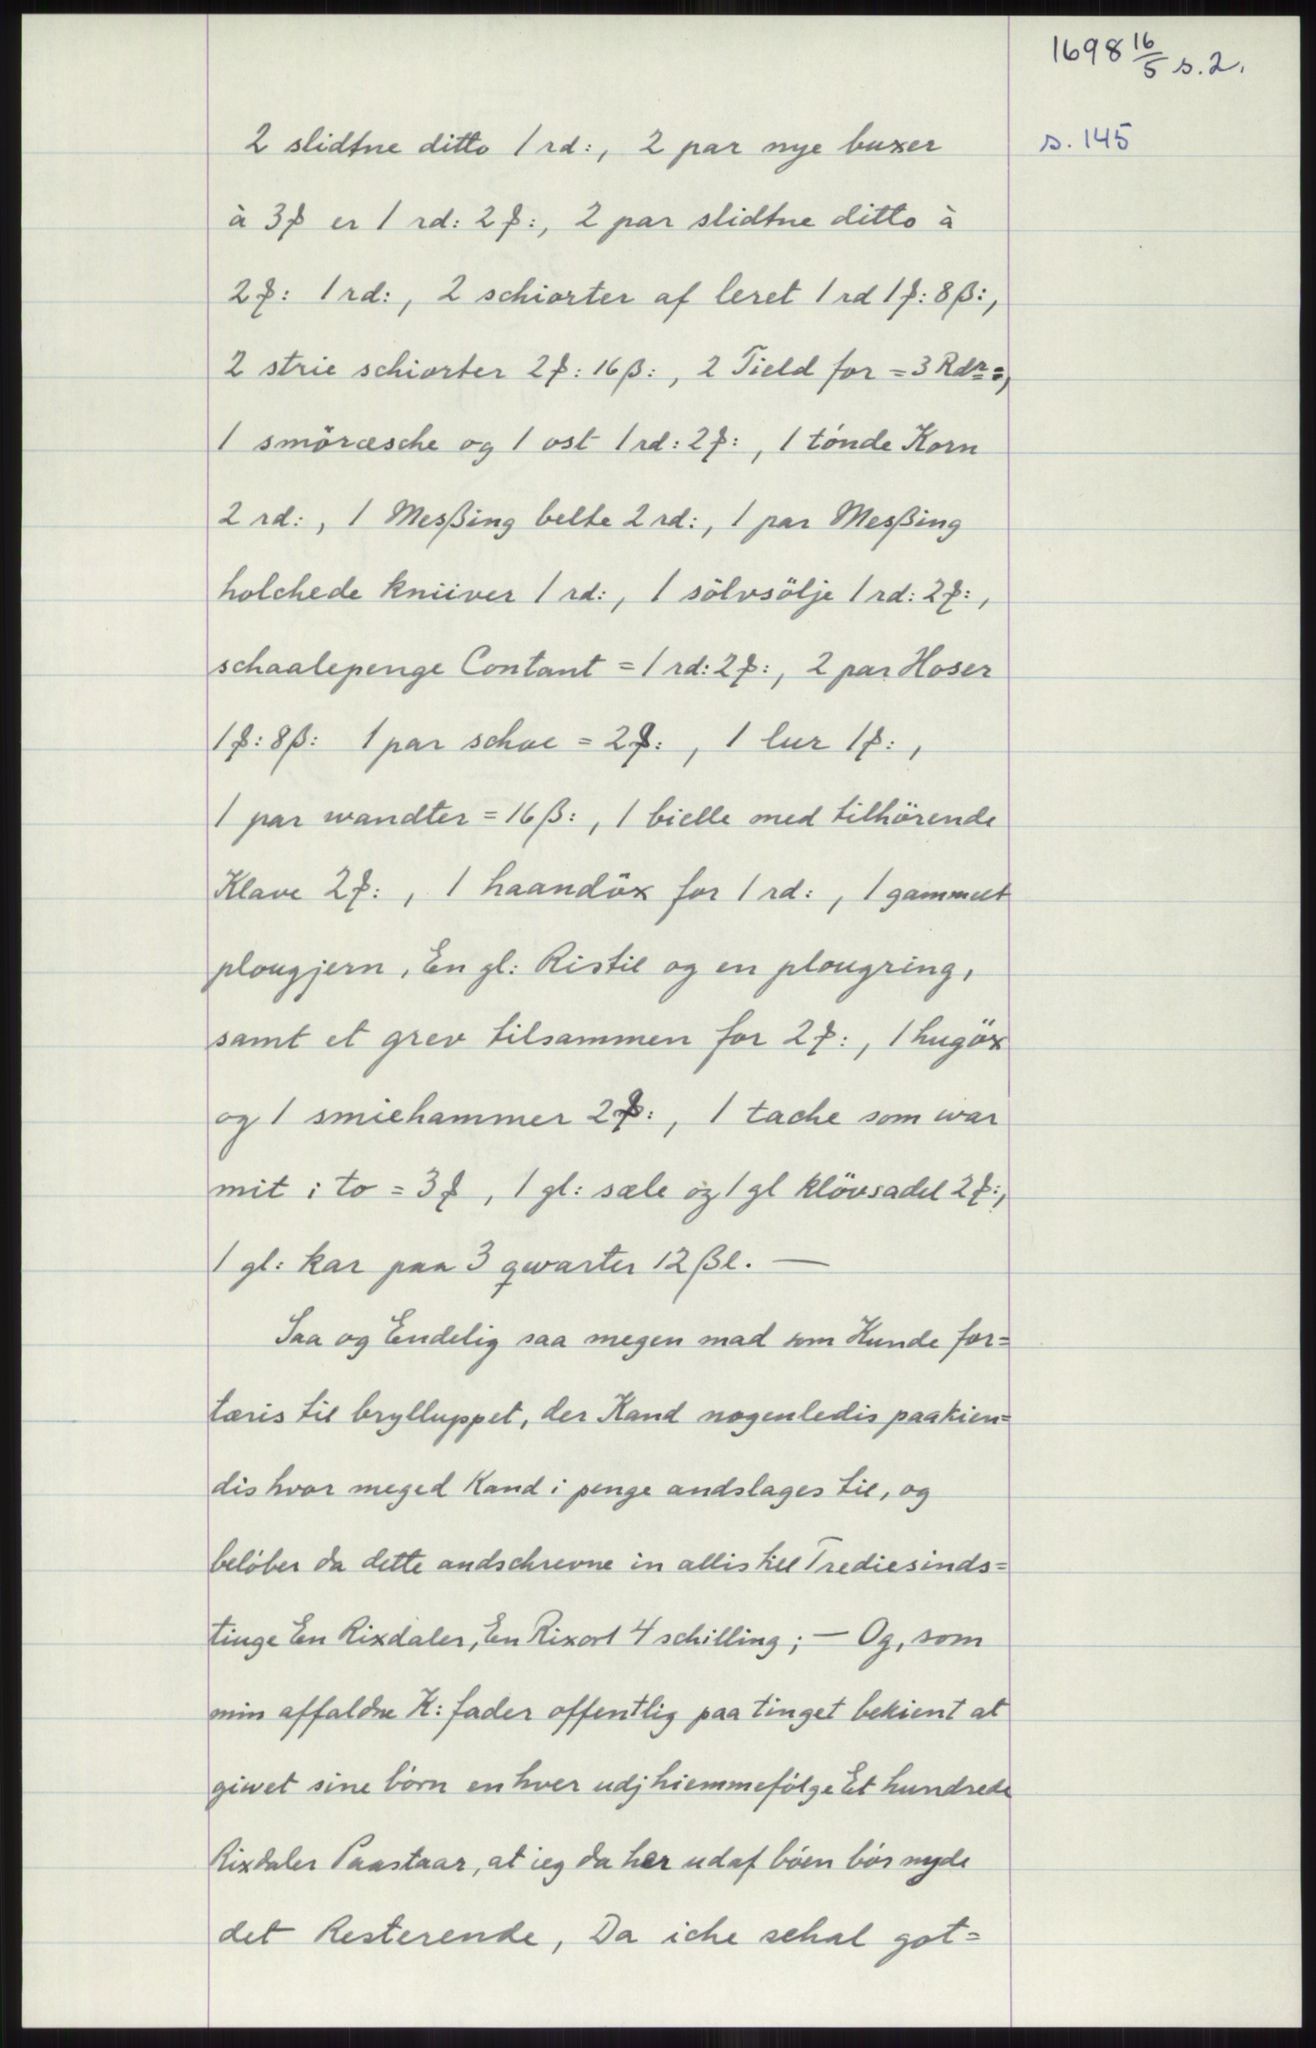 1698 16/5 s. 2.
s. 145
2 slidtne ditto 1 rd:, 2 par nye buxer
à 3ꝑ er 1 rd: 2ꝑ:, 2 par slidtne ditto à
2ꝑ: 1 rd:, 2 schiorter af leret 1 rd 1ꝑ: 8β:,
2 strie schiorter 2ꝑ: 16β:, 2 Tield for = 3 Rdr=,
1 smöræsche og 1 ost 1 rd: 2ꝑ:, 1 tónde Korn
2 rd:, 1 Mesβing belte 2 rd:, 1 par Mesβing
holchede kniiver 1 rd:, 1 sölvsölje 1 rd: 2ꝑ:,
schaalepenge Contant = 1 rd: 2ꝑ:, 2 par Hoser
1ꝑ: 8β: 1 par schoe = 2ꝑ:, 1 lur 1ꝑ:,
1 par wandter = 16β:, 1 bielle med tilhörende
Klave 2ꝑ:, 1 haandöx for 1 rd:, 1 gammelt
plougjern, En gl: Ristil og en plougring,
samt et grev tilsammen for 2ꝑ:, 1 hugöx
og 1 smiehammer 2ꝑ:, 1 tache som war
mit i to = 3ꝑ, 1 gl: sæle og 1 gl klövsadel 2ꝑ:,
1 gl: kar paa 3 qwarter 12 βl. —
Saa og Endelig saa megen mad som Kunde for=
tæris til brylluppet, der Kand nogenledis paakien=
dis hvor meged Kand i penge andslages til, og
belóber da dette andschrevne in allis till Trediesinds=
tiuge En Rixdaler, En Rixort 4 schilling; — Og, som
min affaldne K: fader offentlig paa tinget bekient at
giwet sine börn en hver udj hiemmefólge Et hundrede
Rixdaler Paastaar, at ieg da her udaf bóen bór nyde
det Resterende, Da iche schal got=